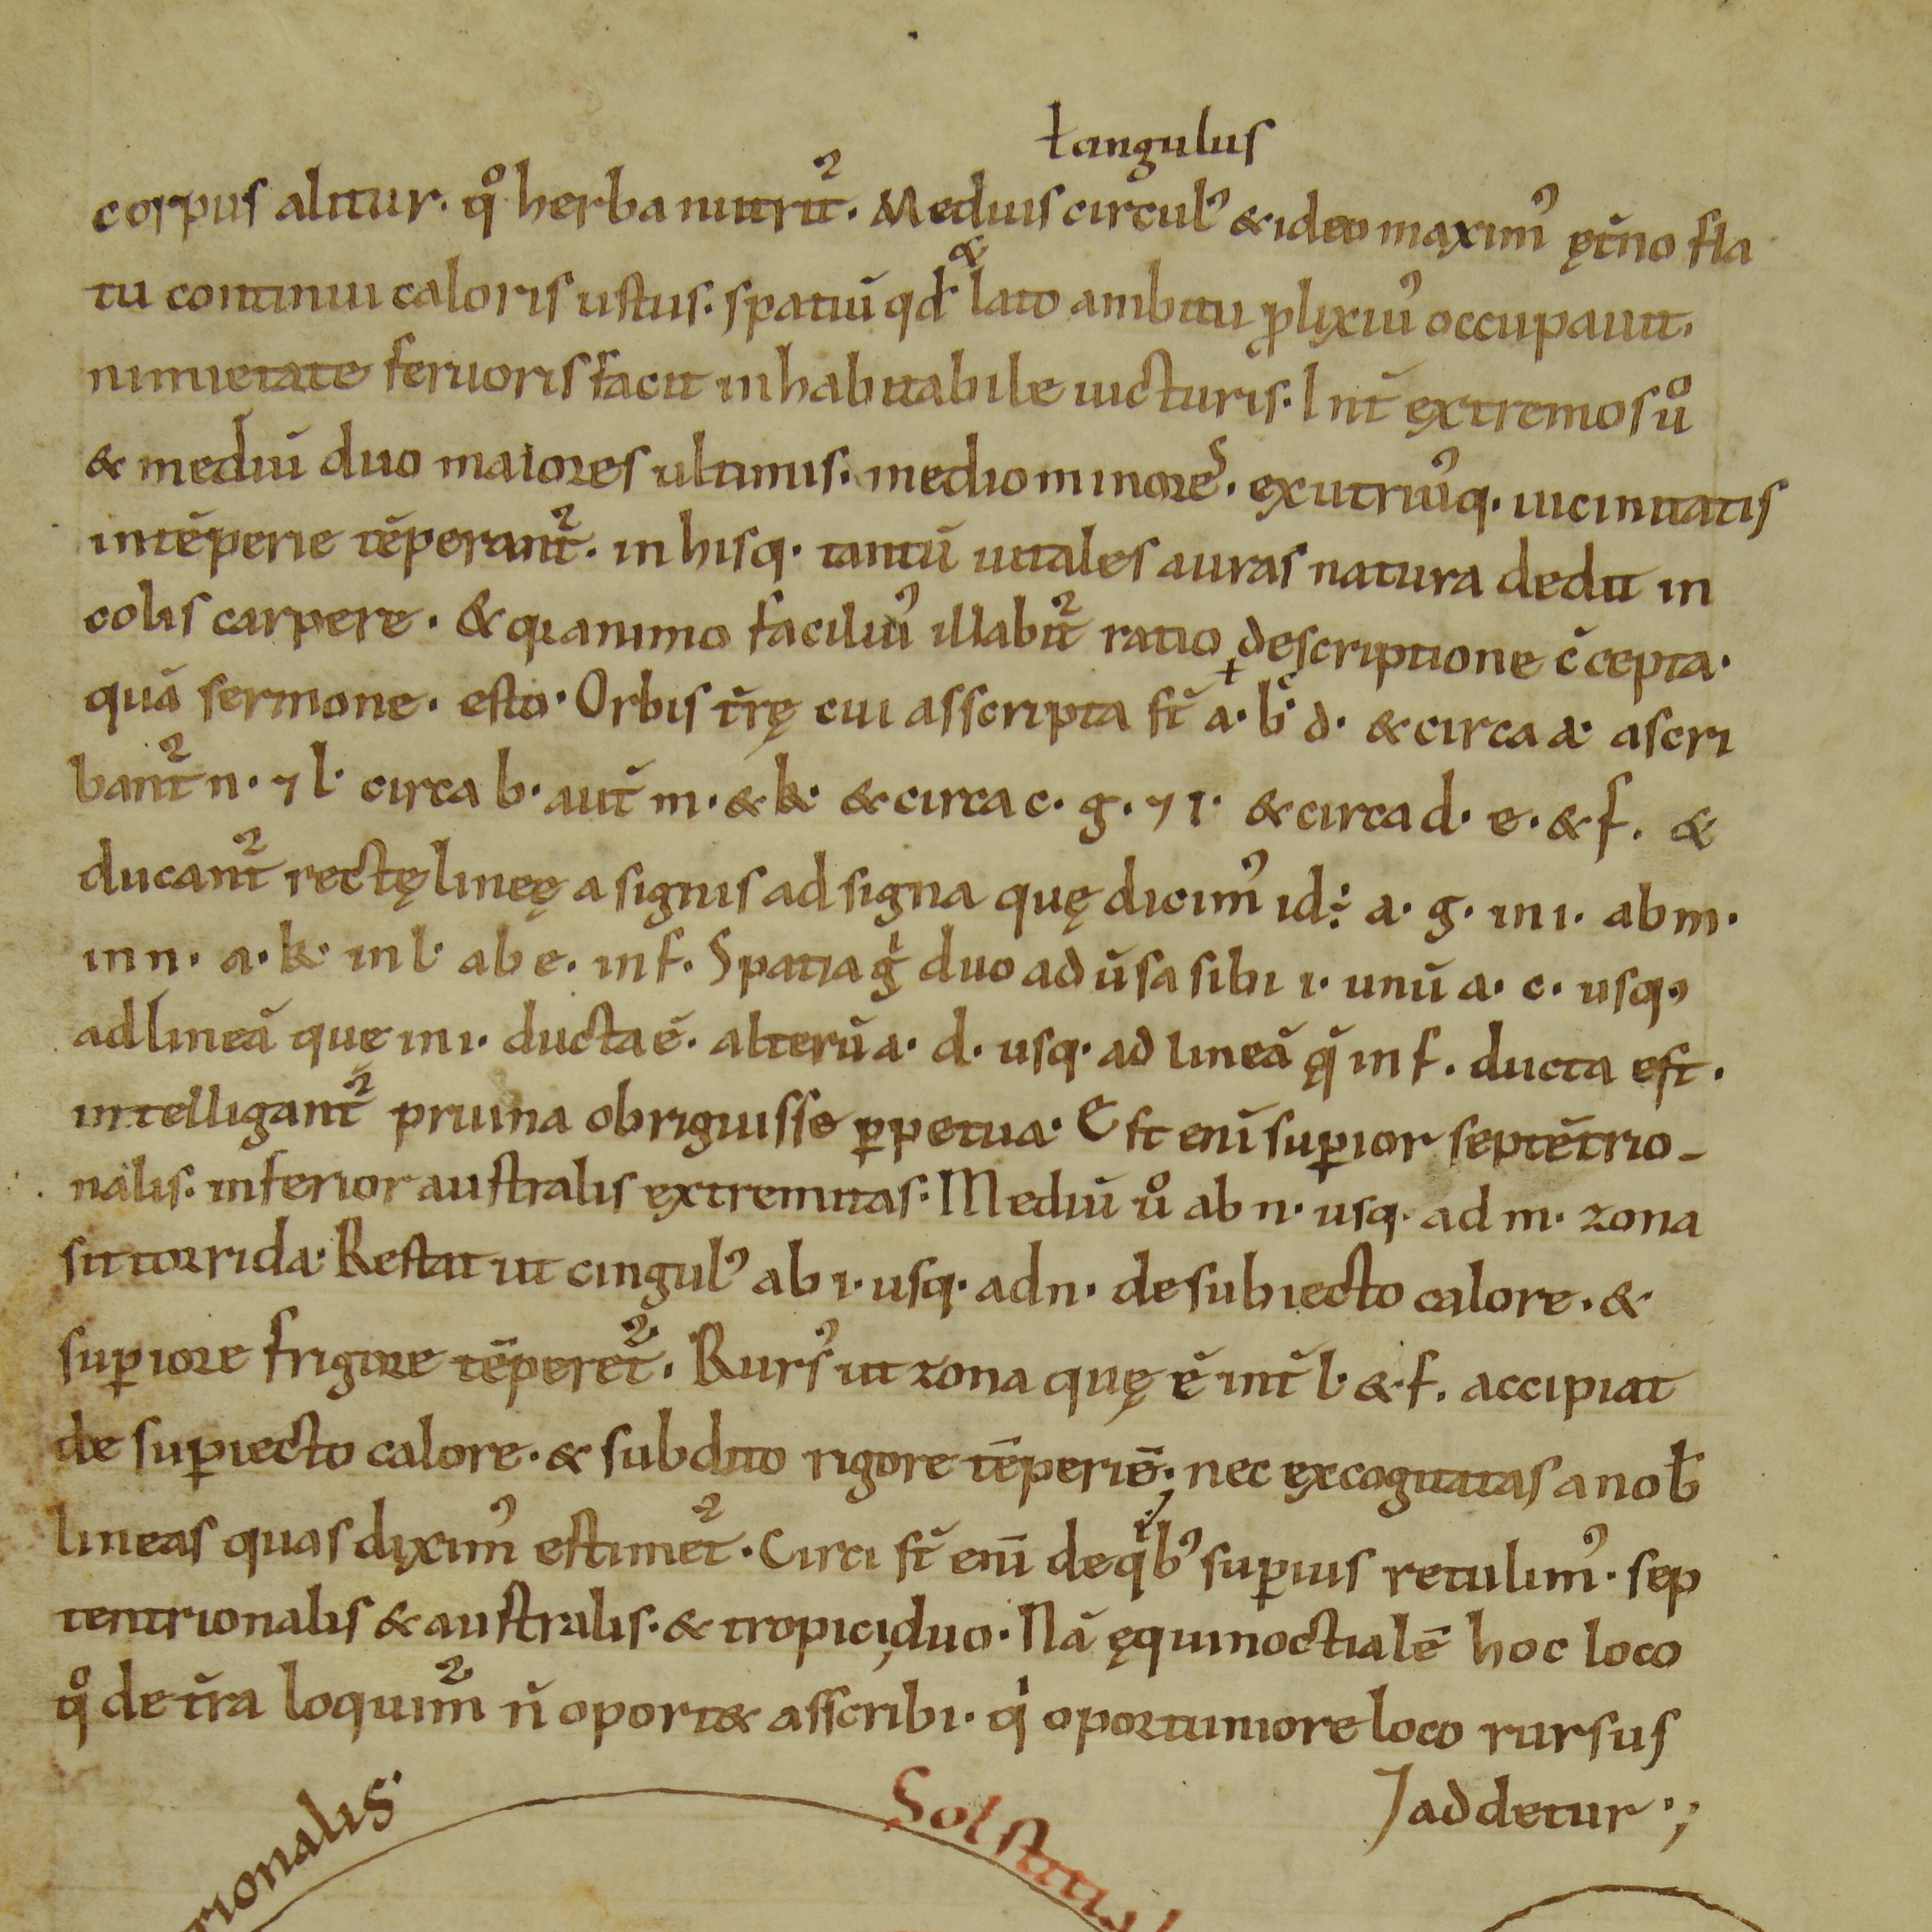 ł angulus
corpus alitur. qͦ herba nutrit᷑. Medius circulꝰ & ideo maximꝰ ęt̄no fla
&
tu continui caloris ustus. spatiū qd᷎ lato ambitu ꝓlixiꝰ occupauit.
nimietate feruoris facit inhabitabile uicturis. Int̄ extremos uͦ
& mediū duo maiores ultimis. medio minores. ex utriusꝗ. uicinitatis
intēperie tēperant᷑. in hisq. tantū uitales auras natura dedit in
colis carpere. & qi animo faciliꝰ illabit᷑ ratio descriptione c̄cepta.
quā sermone. esto. Orbis t̄rę cui asscripta st̄ a. b. c d. & circa a. ascri
bant᷑ n. ⁊ l. circa b. aut̄ m. & k. & circa c. g. ⁊ i. & circa d. e. & f. &
ducant᷑ rectę lineę a signis ad signa quę dicimꝰ id ÷ a. g. in i. ab m.
in n. a. k. in l. ab e. in f. Spatia gͥ duo aduͥsa sibi i. unū a. c. usqꝫ
ad lineā quę in i. ducta ē. alterū a. d. usq. ad lineā ꝗ̄ in f. ducta est.
intelligant᷑ pruina obriguisse ꝑpetua. Est enī suꝑior septētrio-
nalis. inferior australis extremitas. Mediū uͦ ab n. usq. ad m. zona
sit torrida. Restat ut cingulꝰ ab i. usq. ad n. de subiecto calore. &
suꝑiore frigore tēperet᷑. Rursꝰ ut zona quę ē int̄ l. & f. accipiat
de suꝑiecto calore. & subdito rigore tēperiē. nec excogitatas a nob̄
lineas quas diximꝰ estimet᷑. Circi st̄ enī de qͥbꝰ suꝑius retulimꝰ. sep
tentrionalis & australis. & tropici duo. Nā ęquinoctialē hoc loco
qͦ de t̄ra loquim᷑ n̄ oport& asscribi. qͥ oportuniore loco rursus
addetur.;
rionalis
Solstitial